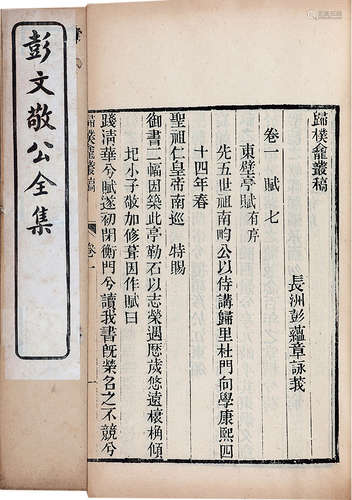 彭文敬公全集
歸樸龕叢稿
長洲彭蘊章詠莪
卷一 賦七
東壁亭賦有序
先五世祖南畇公以侍講歸里杜門向學康熙四
十四年春
聖祖仁皇帝南巡 特賜
御書二幅因築此亭勒石以志榮遇歷歲悠遠榱桷傾
圮小子敬加修葺因作賦曰
踐淸華兮賦遂初閉衡門兮讀我書旣榮名之不競兮
歸樸龕叢稿 卷一